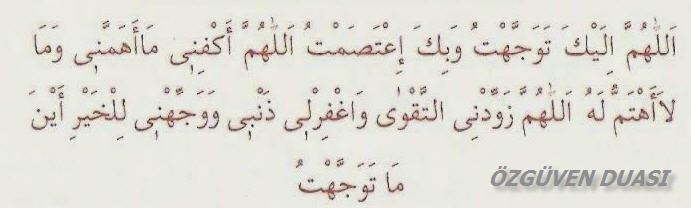 اَللّٰهُمَّ اِلَيْكَ تَوَجَّهْتُ وَبِكَ إِعْتَصَمْتُ اَللّٰهُمَّ أَكْفِنِى مَاأَهَمَّنِى وَمَا
لاَأَهْتَمُّ لَهُ اَللّٰهُمَّ زَوِّدْنِى التَّقْوٰى وَاغْفِرْلِى ذَنْبِى وَوَجِّهْنِى لِلْخَيْرِ أَيْنَ
مَا تَوَجَّهْتُ
ÖZGÜVEN DUASI